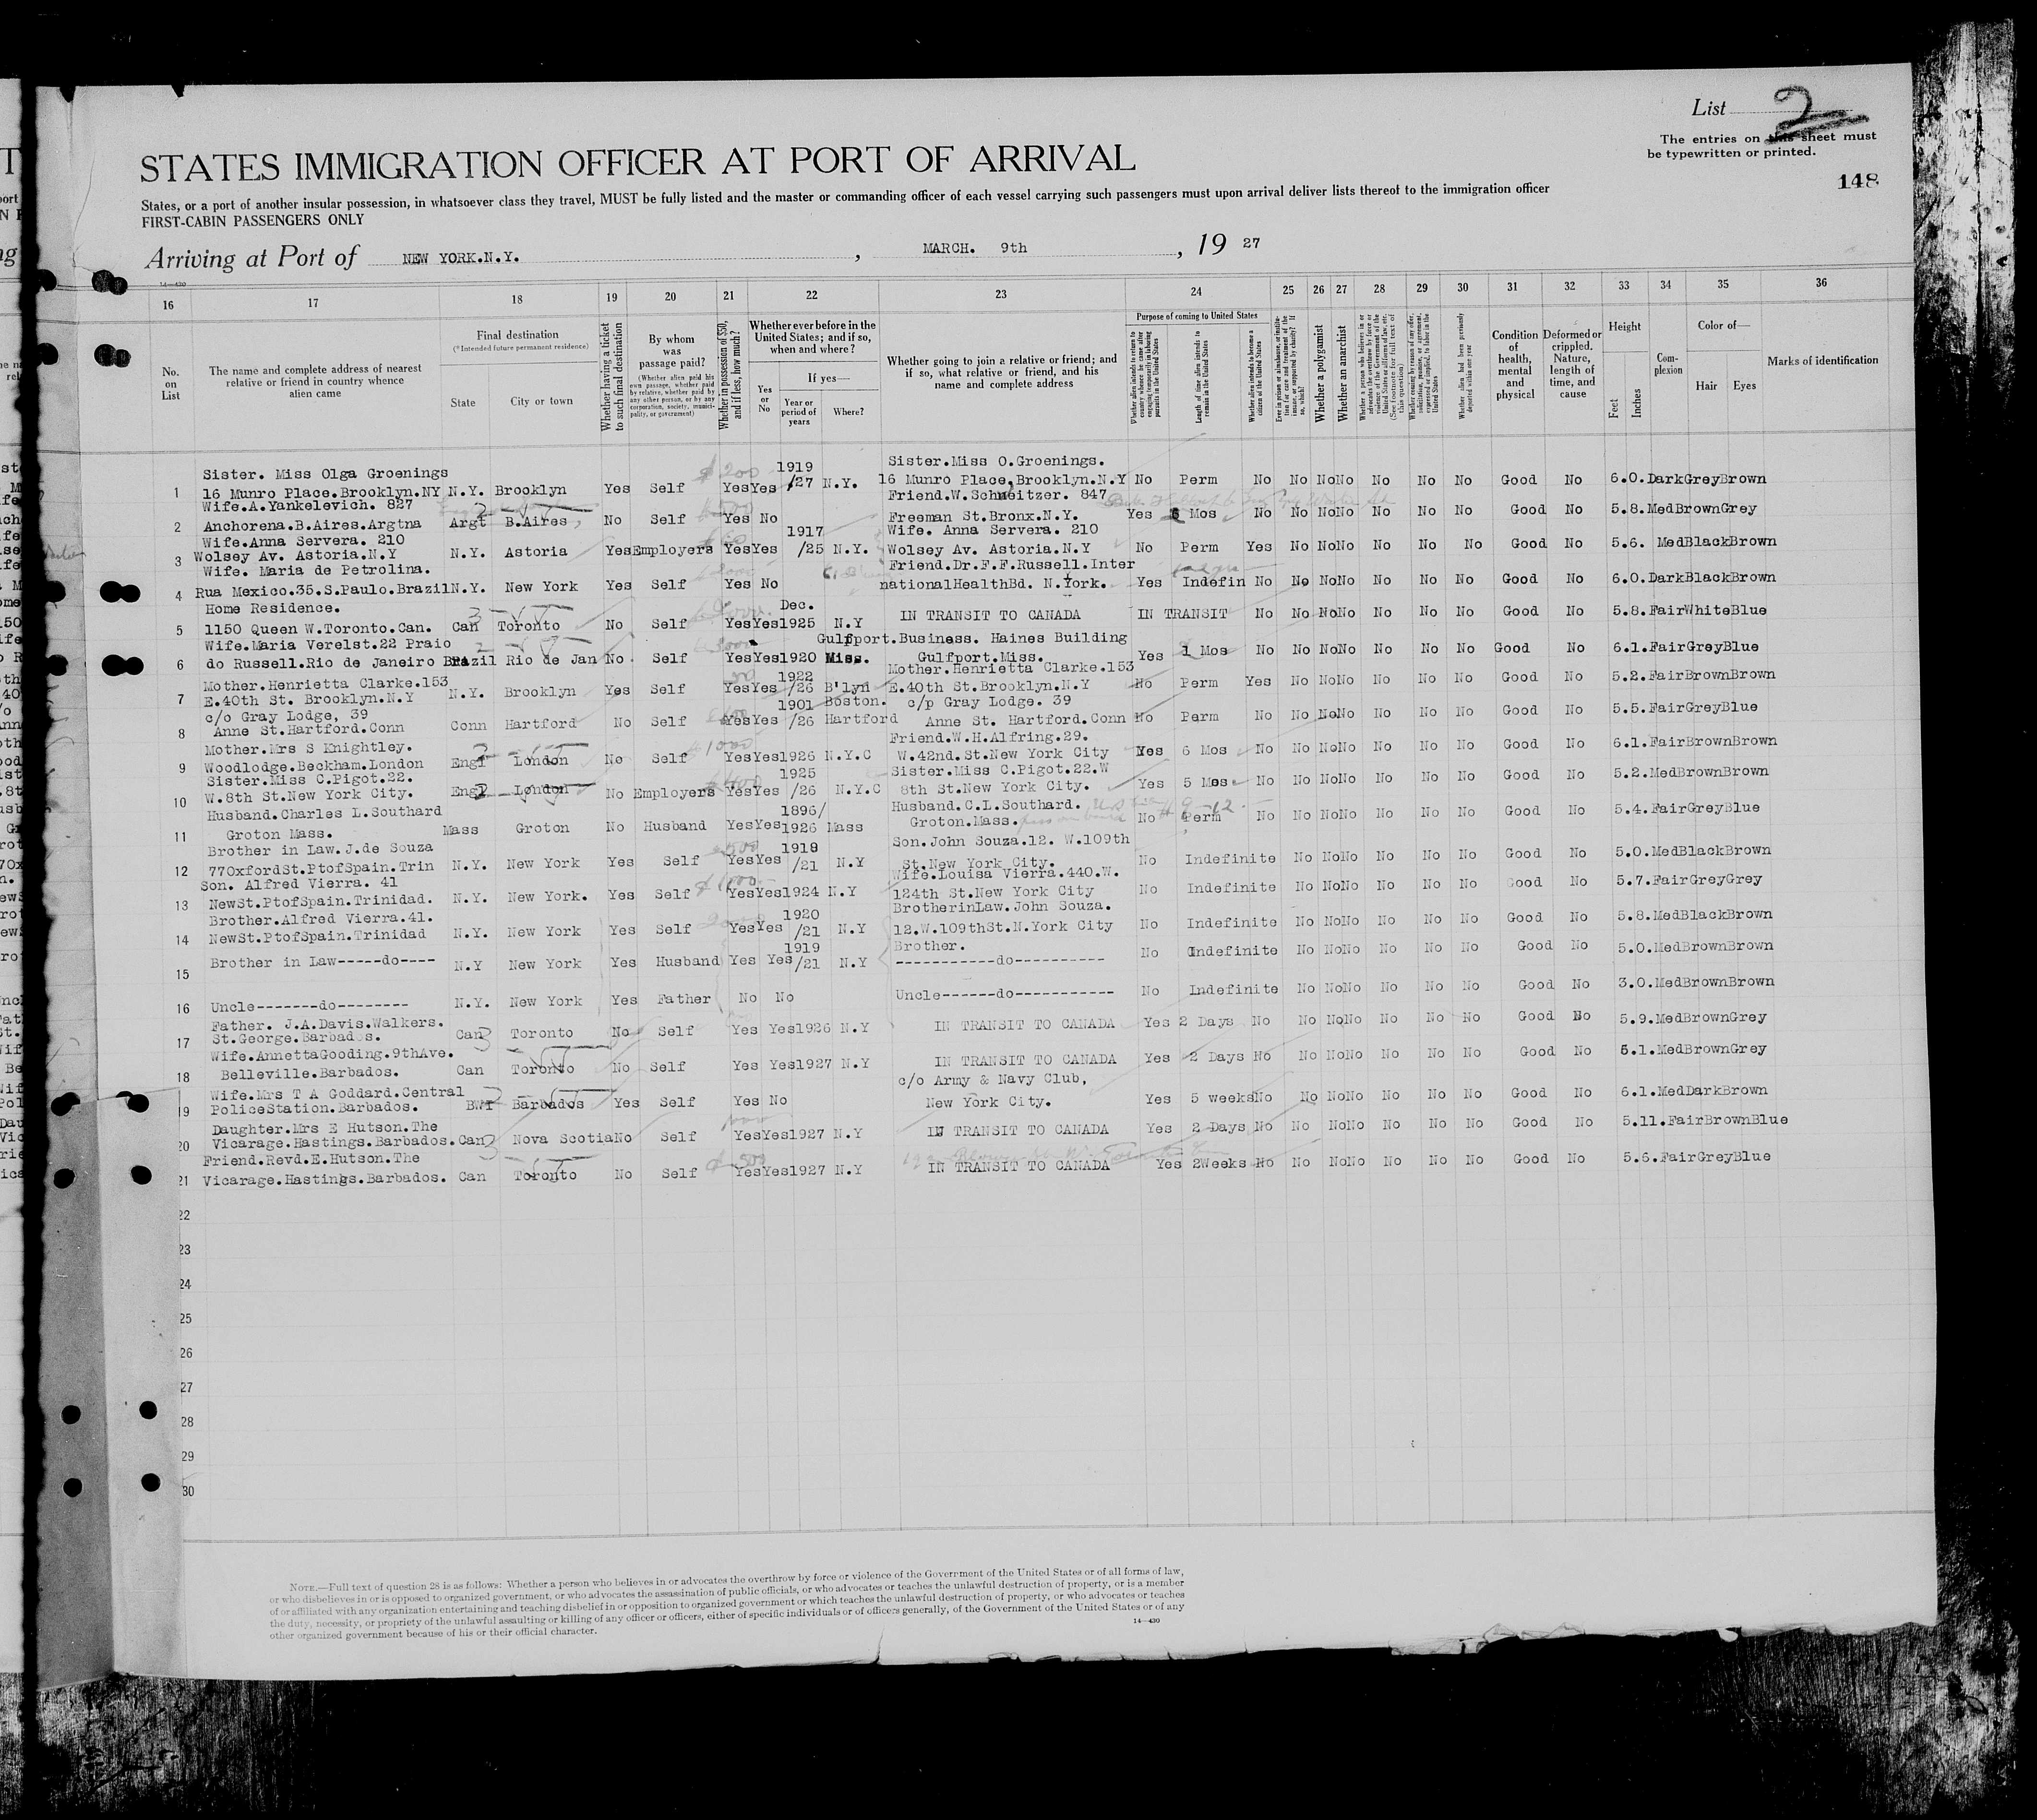 List 2
The entries on this sheet must
be typewritten or printed.
148
STATES IMMIGRATION OFFICER AT PORT OF ARRIVAL
States, or a port of another insular possession, in whatsoever class they travel, MUST be fully listed and the master or commanding officer of each vessel carrying such passengers must upon arrival deliver lists thereof to the immigration officer
FIRST-CABIN PASSENGERS ONLY
Arriving at Port of NEW YORK.N.Y. , MARCH. 9th , 19 27
14—430
16 17 18 19 20 21 22 23 24 25 26 27 28 29 30 31 32 33 34 35 36
No. on List
The name and complete address of nearest relative or friend in country whence alien came
Final destination
(*Intended future permanent residence)
State
City or town
Whether having a ticket to such final destination
By whom was passage paid?
(Whether alien paid his own passage, whether paid by relative, whether paid by any other person, or by any corporation, society, municipality, or government)
Whether in possession of $50, and if less, how much?
Whether ever before in the United States; and if so, when and where?
Yes or No
If yes—
Year or period of years
Where?
Whether going to join a relative or friend; and if so, what relative or friend, and his name and complete address
Purpose of coming to United States
Length of time alien intends to remain in the United States
Whether alien intends to become a citizen of the United States
Whether a polygamist
Whether an anarchist
Condition of health, mental and physical
Deformed or crippled. Nature, length of time, and cause
Height
Feet
Inches
Complexion
Color of—
Hair
Eyes
Marks of identification
Sister. Miss Olga Groenings 1919 Sister.Miss O.Groenings.
1 16 Munro Place.Brooklyn.NY N.Y. Brooklyn Yes Self Yes Yes /27 N.Y. 16 Munro Place,Brooklyn.N.Y No Perm No No No No No No No Good No 6.0. Dark Grey Brown
Wife.A.Yankelevich. 827 Friend.W.Schweitzer. 847
2 Anchorena.B.Aires.Argtna Argt B.Aires, No Self Yes No Freeman St.Bronx.N.Y. Yes 6 Mos No No No No No No No Good No 5.8. Med Brown Grey
Wife.Anna Servera. 210 1917 Wife. Anna Servera. 210
3 Wolsey Av. Astoria.N.Y N.Y. Astoria Yes Employers Yes Yes /25 N.Y. Wolsey Av. Astoria.N.Y No Perm Yes No No No No No No Good No 5.6. Med Black Brown
Wife. Maria de Petrolina. Friend.Dr.F.F.Russell.Inter
4 Rua Mexico.35.S.Paulo.Brazil N.Y. New York Yes Self Yes No nationalHealthBd. N.York. Yes Indefin No No No No No No No Good No 6.0. Dark Black Brown
Home Residence. Dec.
5 1150 Queen W.Toronto.Can. Can Toronto No Self Yes Yes 1925 N.Y IN TRANSIT TO CANADA IN TRANSIT No No No No No No No Good No 5.8. Fair White Blue
Wife.Maria Verelst.22 Praio Gulfport.Business. Haines Building
6 do Russell.Rio de Janeiro Brazil Rio de Jan No Self Yes Yes 1920 Miss. Gulfport.Miss. Yes 1 Mos No No No No No No No Good No 6.1. Fair Grey Blue
Mother.Henrietta Clarke.153 1922 Mother.Henrietta Clarke.153
7 E.40th St. Brooklyn.N.Y N.Y. Brooklyn Yes Self Yes Yes /26 B'lyn E.40th St.Brooklyn.N.Y No Perm Yes No No No No No No Good No 5.2. Fair Brown Brown
c/o Gray Lodge, 39 1901 Boston. c/p Gray Lodge. 39
8 Anne St.Hartford.Conn Conn Hartford No Self Yes Yes /26 Hartford Anne St. Hartford.Conn No Perm No No No No No No No Good No 5.5. Fair Grey Blue
Mother.Mrs S Knightley. Friend.W.H.Alfring.29.
9 Woodlodge.Beckham.London Engl London No Self Yes Yes 1926 N.Y.C W.42nd.St.New York City Yes 6 Mos No No No No No No No Good No 6.1. Fair Brown Brown
Sister.Miss C.Pigot.22. 1925 Sister.Miss C.Pigot.22.W
10 W.8th St.New York City. Engl London No Employers Yes Yes /26 N.Y.C 8th St.New York City. Yes 5 Mos No No No No No No No Good No 5.2. Med Brown Brown
Husband.Charles L.Southard 1896/ Husband.C.L.Southard.
11 Groton Mass. Mass Groton No Husband Yes Yes 1926 Mass Groton.Mass. No Perm No No No No No No No Good No 5.4. Fair Grey Blue
Brother in Law.J.de Souza 1919 Son.John Souza.12. W.109th
12 77OxfordSt.PtofSpain.Trin N.Y. New York Yes Self Yes Yes /21 N.Y St.New York City. No Indefinite No No No No No No Good No 5.0. Med Black Brown
Son. Alfred Vierra. 41 Wife.Louisa Vierra.440.W.
13 NewSt.PtofSpain.Trinidad. N.Y. New York. Yes Self Yes Yes 1924 N.Y 124th St.New York City No Indefinite No No No No No No Good No 5.7. Fair Grey Grey
Brother.Alfred Vierra.41. 1920 BrotherinLaw.John Souza.
14 NewSt.PtofSpain.Trinidad N.Y. New York Yes Self Yes Yes /21 N.Y 12.W.109thSt.N.York City No Indefinite No No No No No No Good No 5.8. Med Black Brown
1919 Brother.
15 Brother in Law-----do---- N.Y New York Yes Husband Yes Yes /21 N.Y -----------do---------- No Indefinite No No No No No No Good No 5.0. Med Brown Brown
16 Uncle-------do-------- N.Y. New York Yes Father No No Uncle------do----------- No Indefinite No No No No No No Good No 3.0. Med Brown Brown
Father. J.A.Davis.Walkers.
17 St.George.Barbados. Can Toronto No Self Yes Yes 1926 N.Y IN TRANSIT TO CANADA Yes 2 Days No No No No No No No Good No 5.9. Med Brown Grey
Wife.AnnettaGooding.9thAve.
18 Belleville.Barbados. Can Toronto No Self Yes Yes 1927 N.Y IN TRANSIT TO CANADA Yes 2 Days No No No No No No No Good No 5.1. Med Brown Grey
Wife.Mrs T A Goddard.Central c/o Army & Navy Club,
19 PoliceStation.Barbados. BWI Barbados Yes Self Yes No New York City. Yes 5 weeks No No No No No No No Good No 6.1. Med Dark Brown
Daughter.Mrs E Hutson.The
20 Vicarage.Hastings.Barbados. Can Nova Scotia No Self Yes Yes 1927 N.Y IN TRANSIT TO CANADA Yes 2 Days No No No No No No No Good No 5.11. Fair Brown Blue
Friend.Revd.E.Hutson.The
21 Vicarage.Hastings.Barbados. Can Toronto No Self Yes Yes 1927 N.Y IN TRANSIT TO CANADA Yes 2Weeks No No No No No No No Good No 5.6. Fair Grey Blue
22
23
24
25
26
27
28
29
30
NOTE.—Full text of question 28 is as follows: Whether a person who believes in or advocates the overthrow by force or violence of the Government of the United States or of all forms of law,
or who disbelieves in or is opposed to organized government, or who advocates the assassination of public officials, or who advocates or teaches the unlawful destruction of property, or is a member
of or affiliated with any organization entertaining and teaching disbelief in or opposition to organized government or which teaches the unlawful destruction of property, or who advocates or teaches
the duty, necessity, or propriety of the unlawful assaulting or killing of any officer or officers, either of specific individuals or of officers generally, of the Government of the United States or of any
other organized government because of his or their official character.
14—430